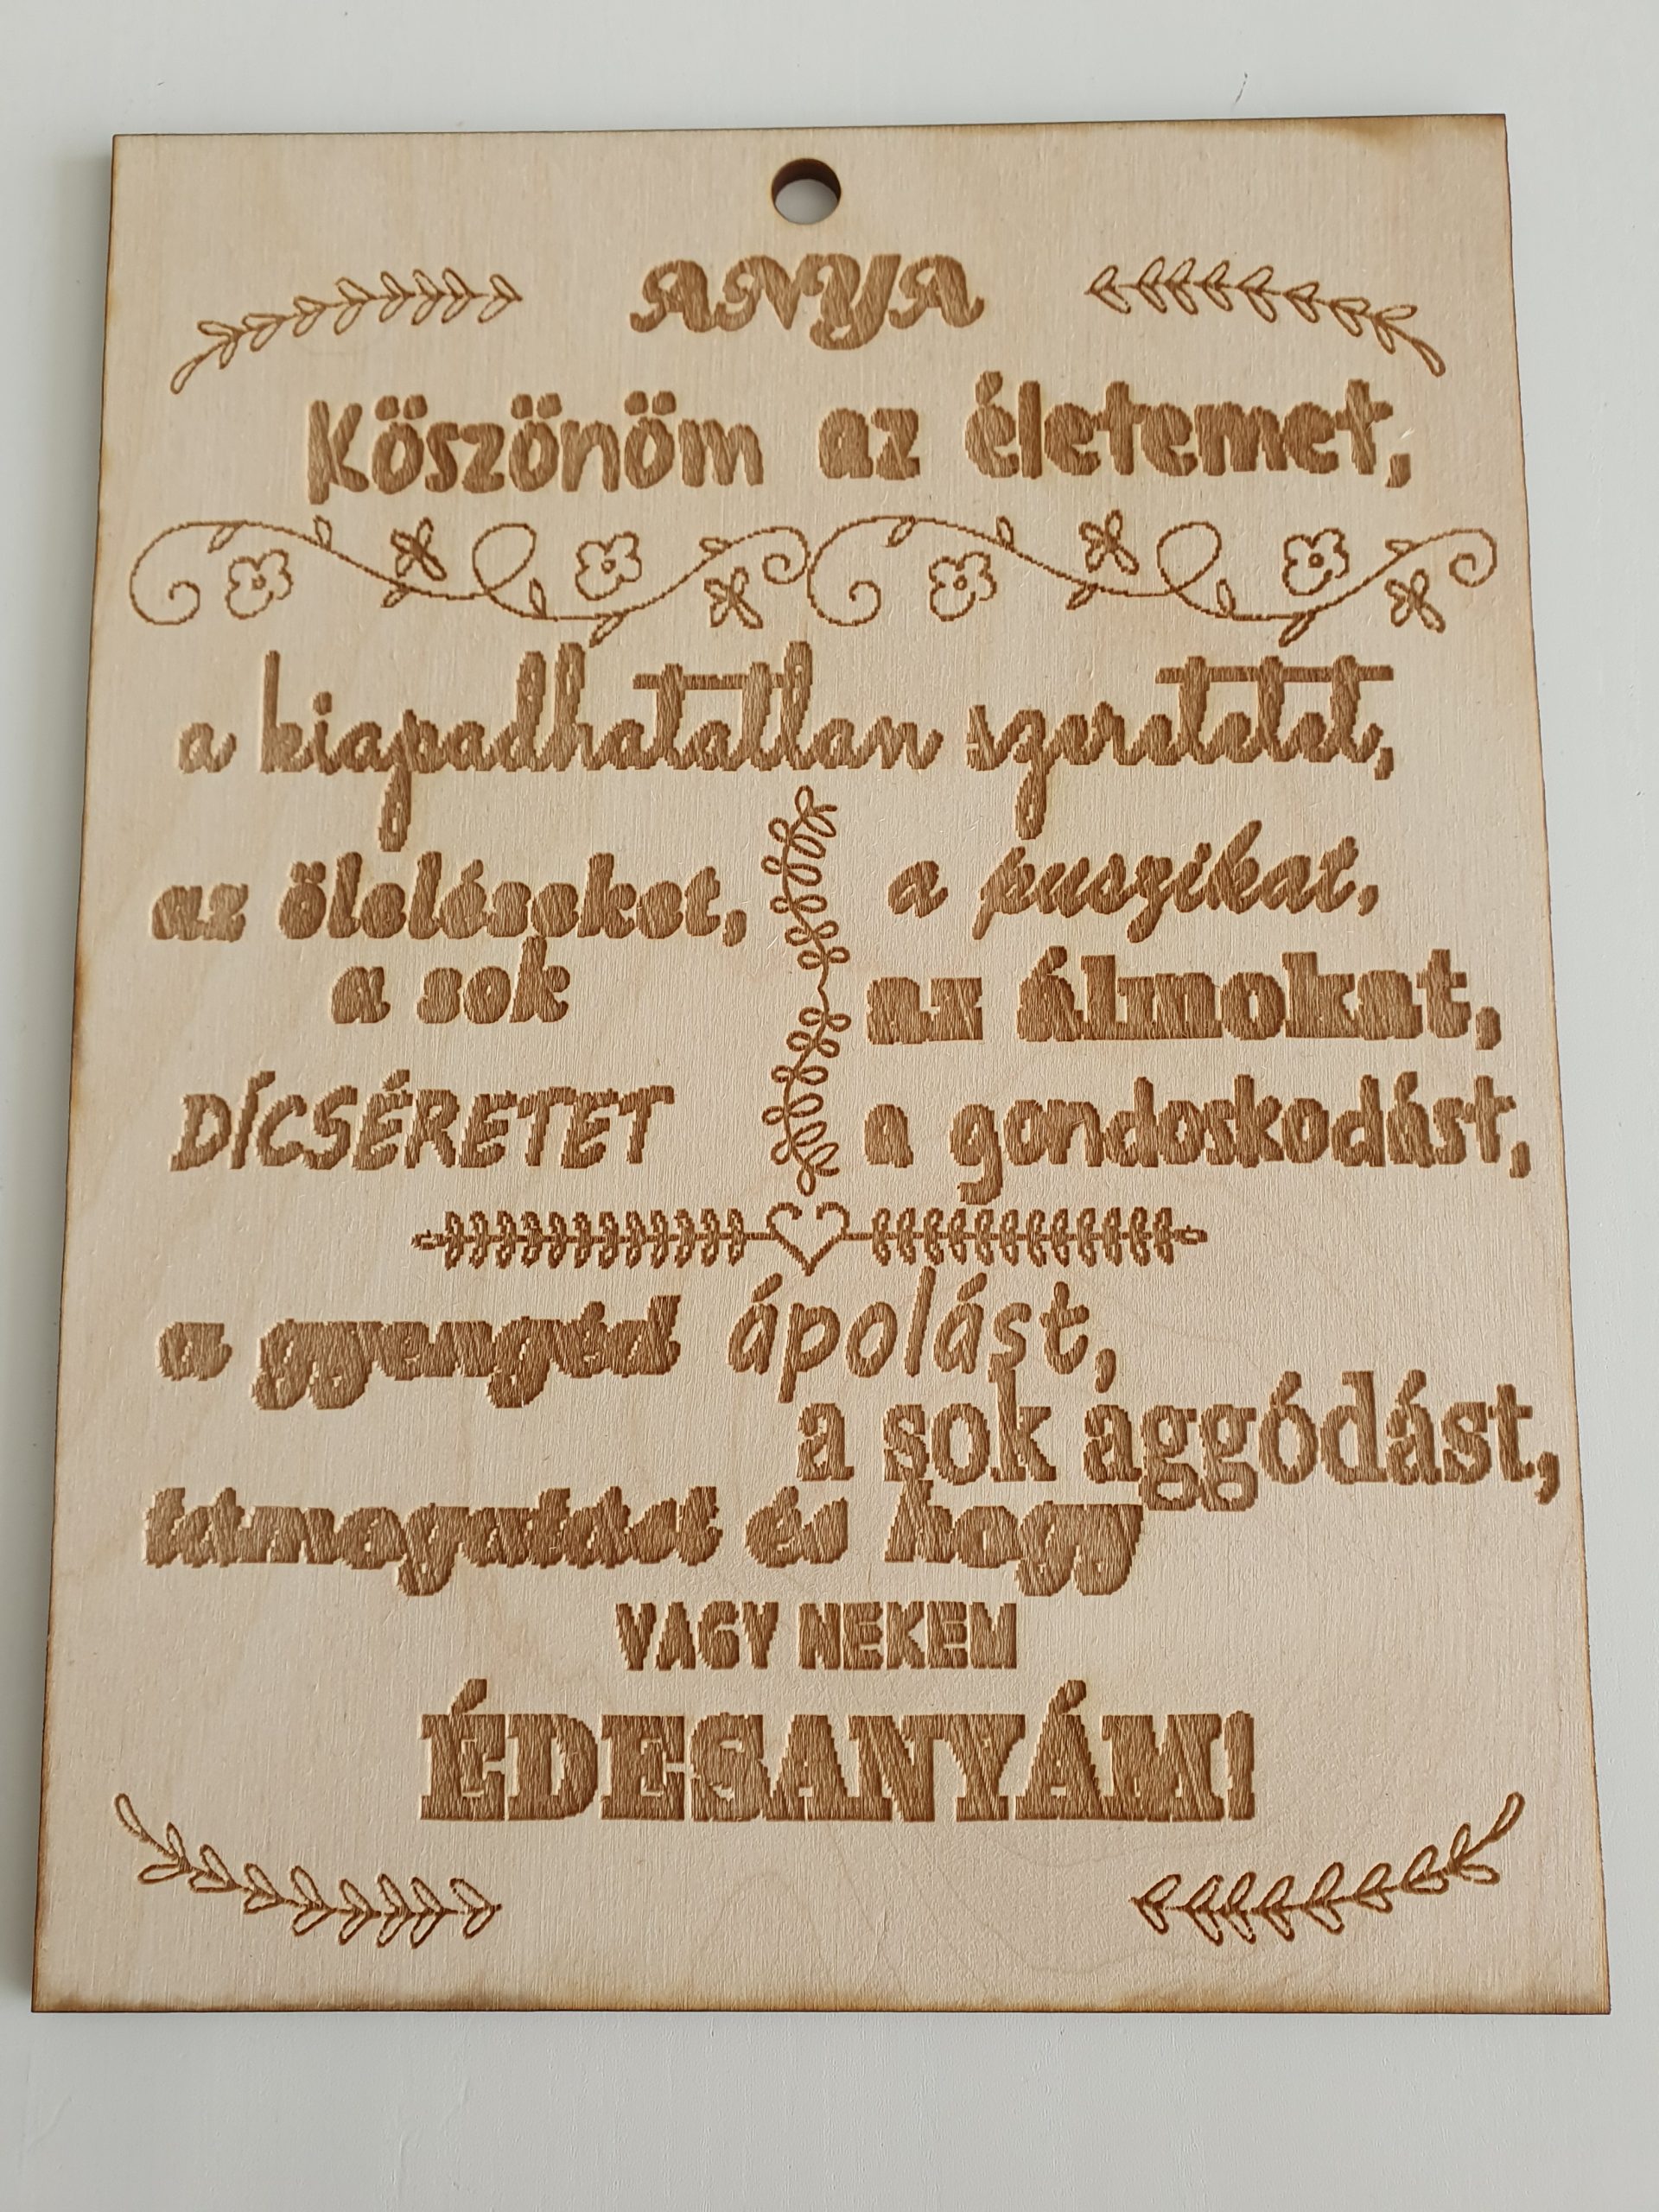 ANYA
Köszönöm az életemet,
a kiapadhatatlan szeretetet,
az öleléseket,
a sok
DÍCSÉRETET
a puszikat,
az álmokat,
a gondoskodást,
a gyengéd ápolást,
a sok aggódást,
támogatást és hogy
VAGY NEKEM
ÉDESANYÁM!